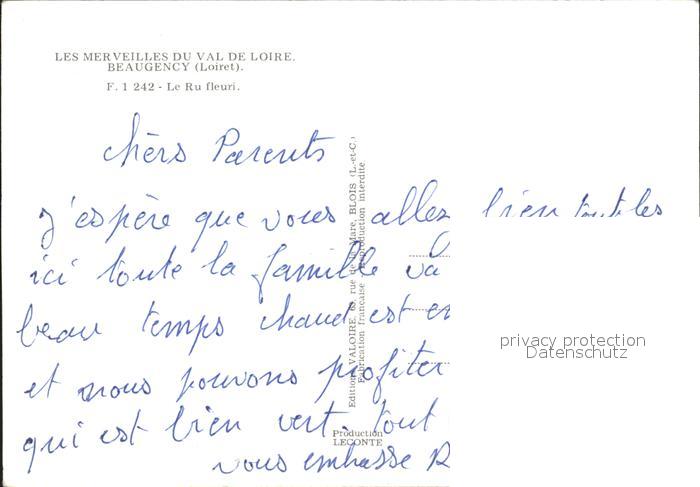 LES MERVEILLES DU VAL DE LOIRE.
BEAUGENCY (Loiret).
F. 1 242 - Le Ru fleuri.
chèrs Parents
J'espère que vous allez bien tous les
ici toute la famille va
beau temps chaud est en
et nous pouvons profiter
qui est bien vert. tout
vous embrasse R
Editions VALOIRE, rue de la Mare, BLOIS (L.-et-C.)
Fabrication française - Reproduction interdite
Production
LECONTE
privacy protection
Datenschutz